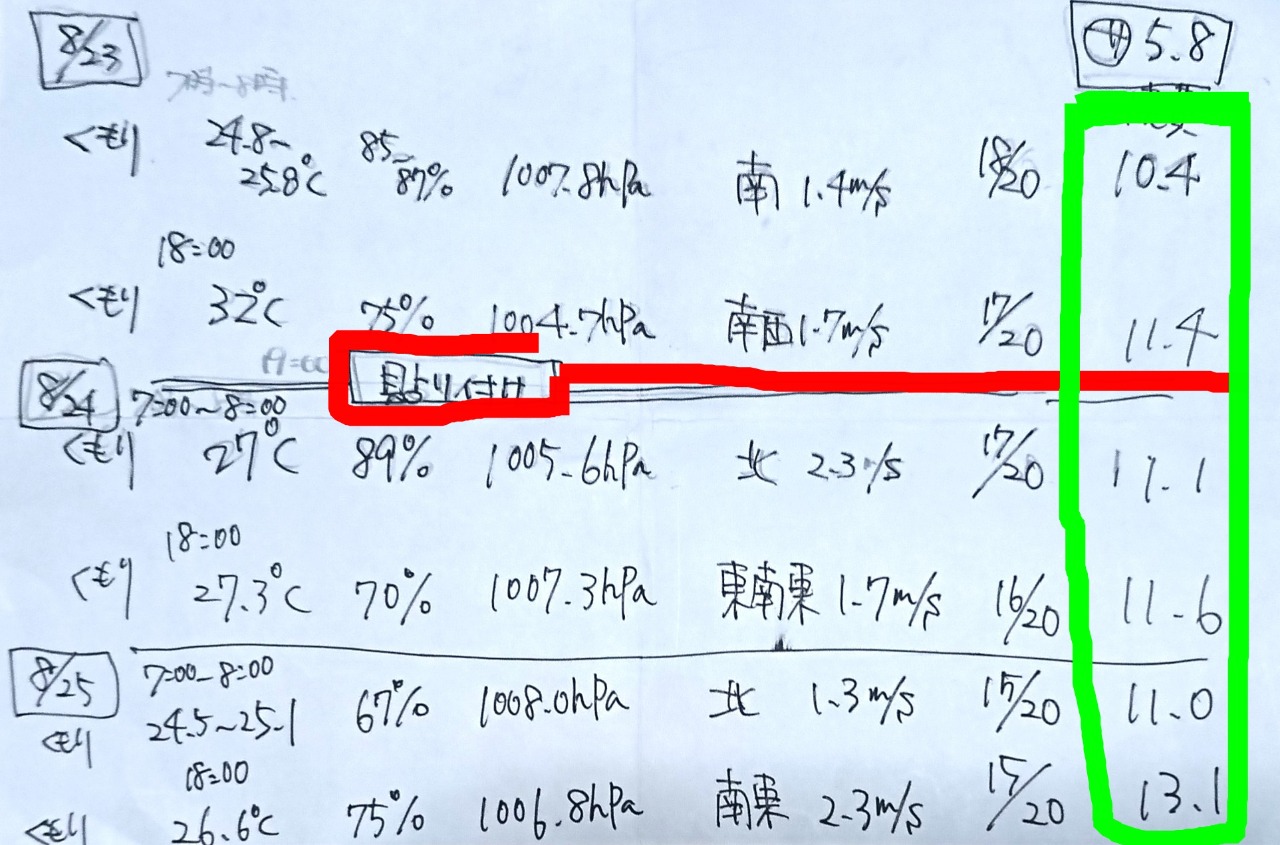 8/23
サ 5.8
7時~8時
くもり 24.8~25.8℃ 85~87% 1007.8hPa 南 1.4m/s 18/20 10.4
18:00
くもり 32℃ 75% 1004.7hPa 南西 1.7m/s 17/20 11.4
8/24
7:00~8:00
くもり 27℃ 89% 1005.6hPa 北 2.3/s 17/20 11.1
18:00
くもり 27.3℃ 70% 1007.3hPa 東南東 1.7m/s 16/20 11.6
8/25
7:00~8:00
くもり 24.5~25.1 67% 1008.0hPa 北 1.3m/s 15/20 11.0
18:00
くもり 26.6℃ 75% 1006.8hPa 南東 2.3m/s 15/20 13.1